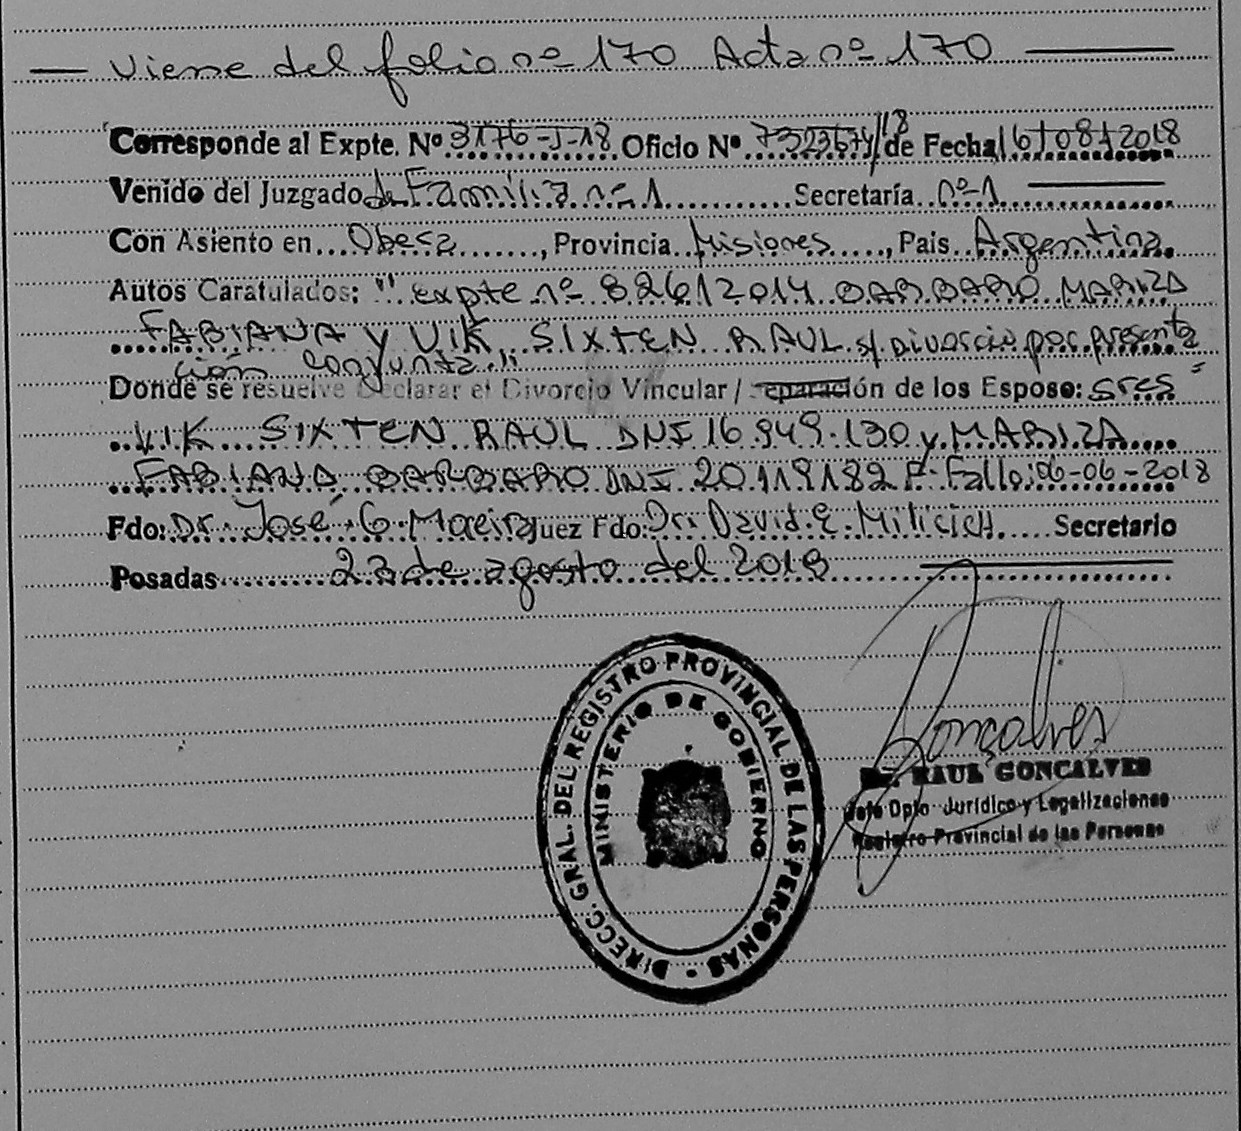 Viene del folio nº 170 Acta nº 170
Corresponde al Expte. Nº 3176-J-18 Oficio Nº 7323574/18 de Fecha 16/08/2018
Venido del Juzgado de Familia nº 1 Secretaría nº 1
Con Asiento en Obera, Provincia Misiones, Pais Argentina
Autos Caratulados: "expte nº 82612014 BARBARO MARIZA
FABIANA y VIK SIXTEN RAUL s/ Divorcio por presenta
ción conjunta"
Donde se resuelve Declarar el Divorcio Vincular / Separación de los Esposo: sres
VIK SIXTEN RAUL DNI 16.949.130 y MARIZA
FABIANA BARBARO DNI 20.119.182 F. Fallo: 06-06-2018
Fdo: Dr. José G. Moreira Juez Fdo: Dr. David E. Milicich Secretario
Posadas 23 de agosto del 2018
DIRECC. GRAL. DEL REGISTRO PROVINCIAL DE LAS PERSONAS
MINISTERIO DE GOBIERNO
Gonçalves
RAUL GONCALVES
Jefe Dpto Jurídico y Legalizaciones
Registro Provincial de las Personas